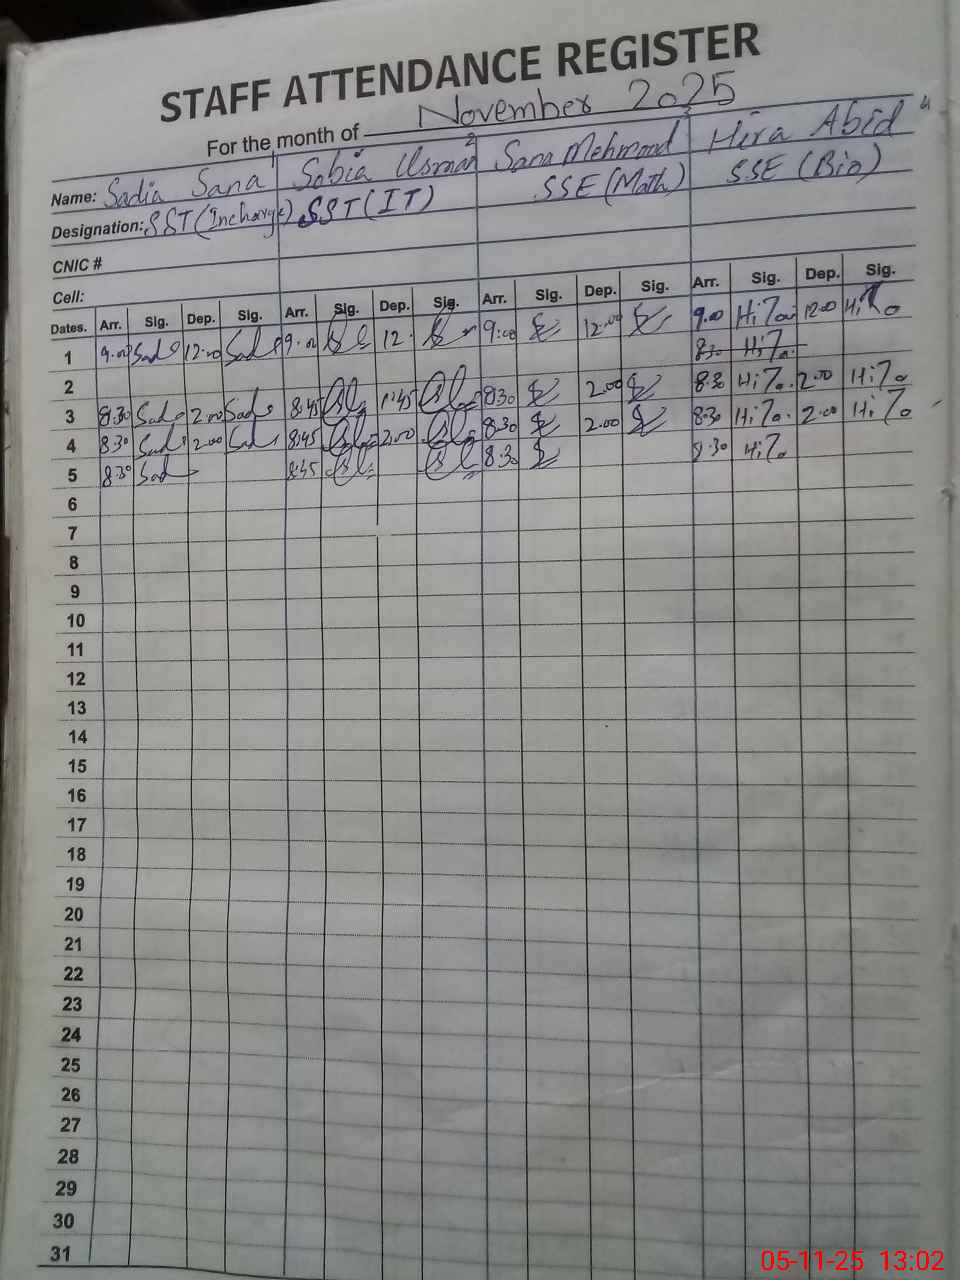 STAFF ATTENDANCE REGISTER
For the month of November 2025
Name: Sadia Sana 1 Sobia Usman 2 Sana Mehmood 3 Hira Abid 4
Designation: SST (Incharge) SST (IT) SSE (Math) SSE (Bio)
CNIC #
Cell:
Dates. Arr. Sig. Dep. Sig. Arr. Sig. Dep. Sig. Arr. Sig. Dep. Sig. Arr. Sig. Dep. Sig.
1 9.00 Sad 12.00 Sad 9.00 12. 9:00 12.00 9.00 Hira 12.00 Hira
8.30 Hira
2 8.30 Hira 2.00 Hira
3 8.30 Sad 2.00 Sad 8.45 1:45 8.30 2.00 8.30 Hira 2.00 Hira
4 8.30 Sad 2.00 Sad 8.45 2.00 8.30 2.00 8.30 Hira
5 8.30 Sad 8.45 8.30
6
7
8
9
10
11
12
13
14
15
16
17
18
19
20
21
22
23
24
25
26
27
28
29
30
31
05-11-25 13:02